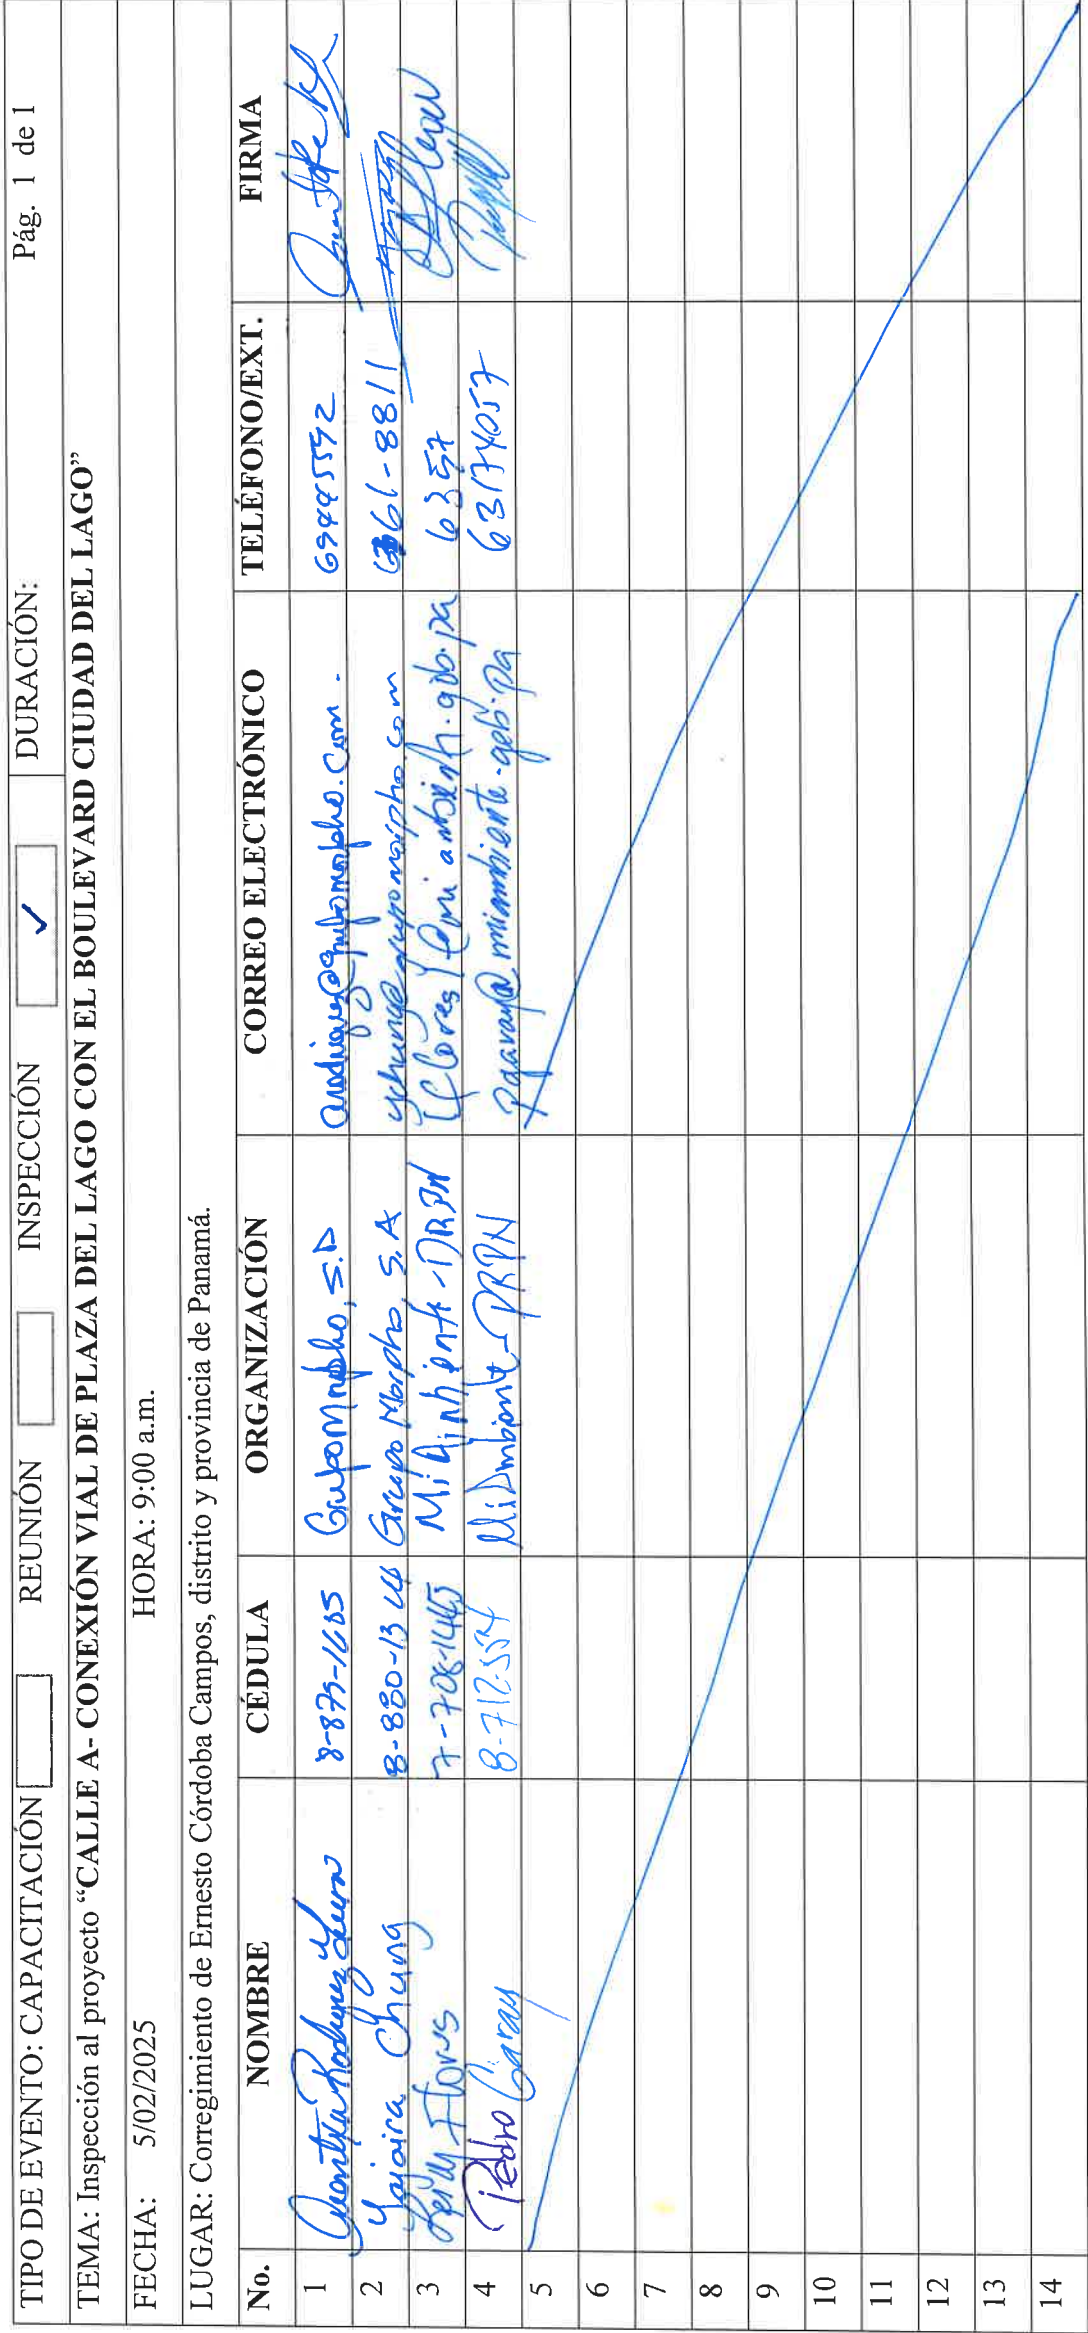 TIPO DE EVENTO: CAPACITACIÓN REUNIÓN INSPECCIÓN ✓ DURACIÓN: Pág. 1 de 1
TEMA: Inspección al proyecto “CALLE A- CONEXIÓN VIAL DE PLAZA DEL LAGO CON EL BOULEVARD CIUDAD DEL LAGO”
FECHA: 5/02/2025 HORA: 9:00 a.m.
LUGAR: Corregimiento de Ernesto Córdoba Campos, distrito y provincia de Panamá.
No. NOMBRE CÉDULA ORGANIZACIÓN CORREO ELECTRÓNICO TELÉFONO/EXT. FIRMA
1 8-879-1685 Grupo Morpho, S.A
2 Yaiaira Chung Grupo Morpho, S.A ychung@grupomorpho.com
3 Flores 7-708-1445 MiAmbiente-DRPN 6357
4 Pedro Garay 8-712-554 MiAmbiente-DRPN pgaray@miambiente.gob.pa 63174057
5
6
7
8
9
10
11
12
13
14